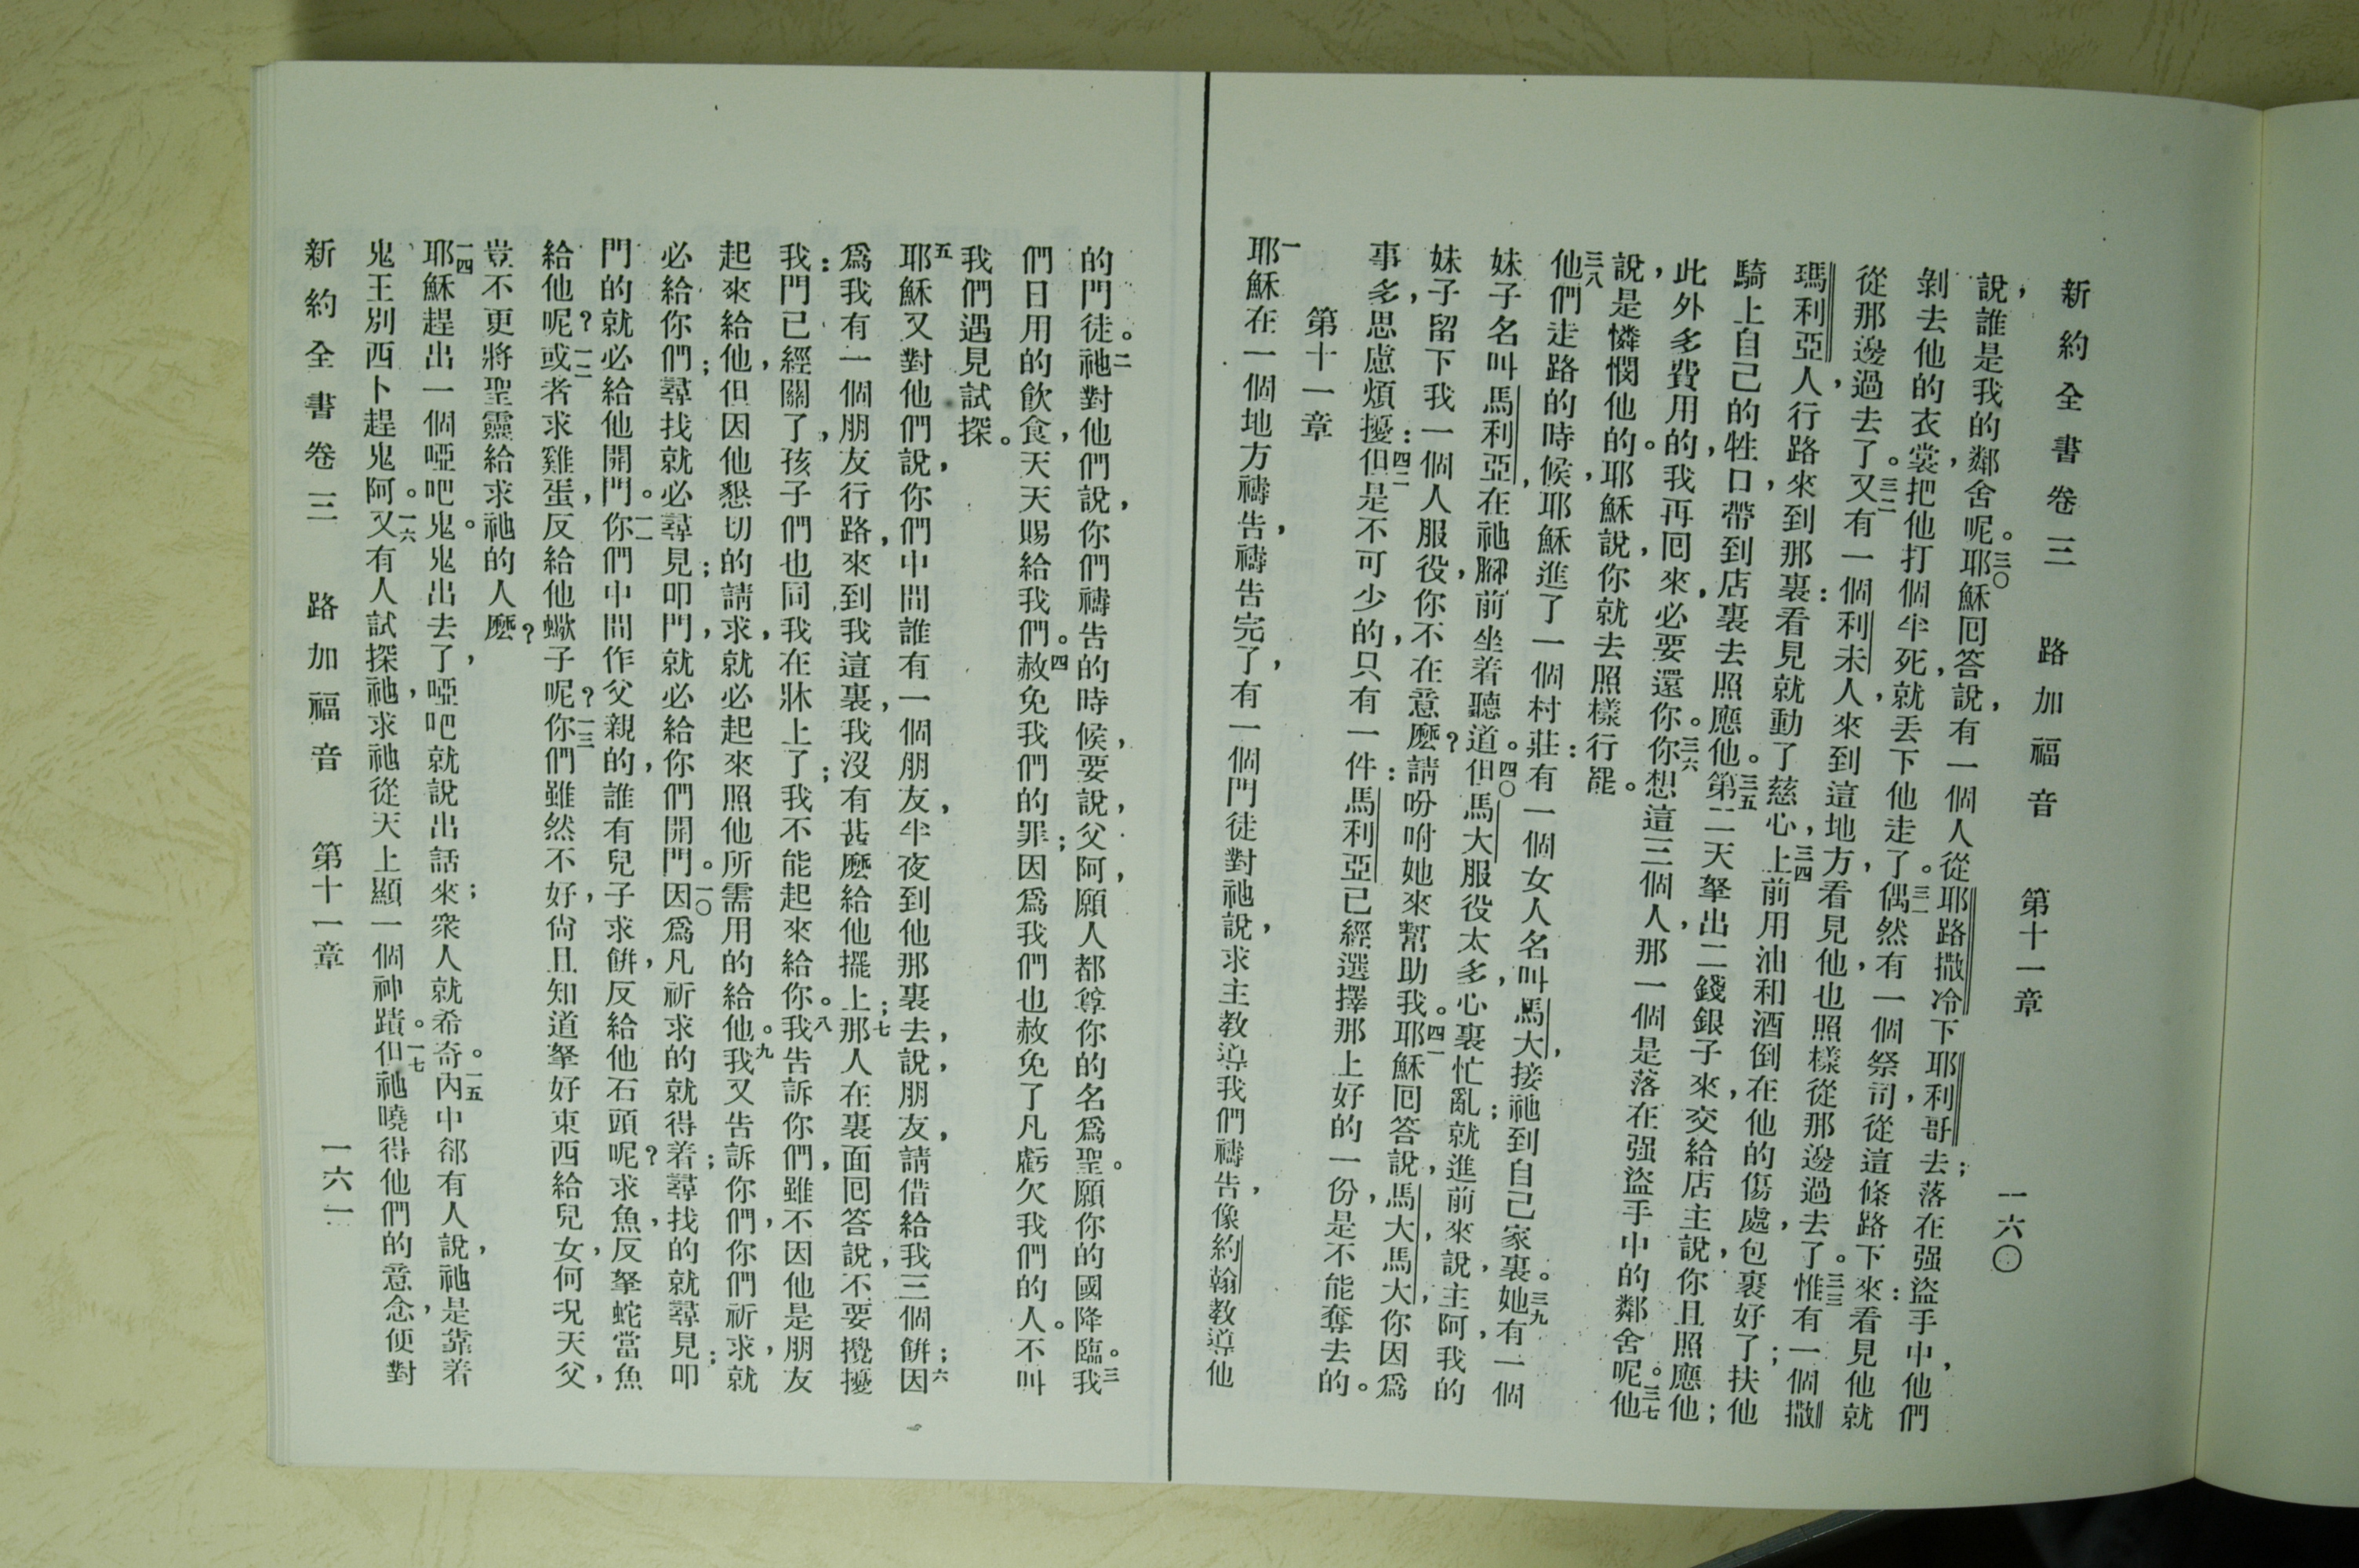 新約全書卷三 路加福音 第十一章 一六〇
說、誰是我的鄰舍呢。三〇耶穌回答說、有一個人從耶路撒冷下耶利哥去；落在强盜手中、他們
剝去他的衣裳、把他打個半死、就丢下他走了。三一偶然有一個祭司、從這條路下來：看見他就
從那邊過去了。三二又有一個利未人、來到這地方、看見他、也照樣從那邊過去了。三三惟有一個撒
瑪利亞人、行路來到那裏：看見就動了慈心、三四上前用油和酒倒在他的傷處、包裹好了；扶他
騎上自己的牲口、帶到店裏去照應他。三五第二天拏出二錢銀子來、交給店主說、你且照應他；
此外多費用的、我再回來、必要還你。三六你想這三個人、那一個是落在强盜手中的鄰舍呢。三七他
說、是憐憫他的。耶穌說、你就去照樣行罷。
三八他們走路的時候、耶穌進了一個村莊：有一個女人名叫馬大、接祂到自己家裏。三九她有一個
妹子名叫馬利亞、在祂脚前坐着聽道。四〇但馬大服役太多、心裏忙亂；就進前來、說、主阿、我的
妹子留下我一個人服役、你不在意麽？請吩咐她來幫助我。四一耶穌回答說、馬大馬大、你因爲
事多、思慮煩擾：四二但是不可少的、只有一件：馬利亞已經選擇那上好的一份、是不能奪去的。
第十一章
一耶穌在一個地方禱告、禱告完了、有一個門徒對祂說、求主教導我們禱告、像約翰教導他
的門徒。二祂對他們說、你們禱告的時候、要說、父阿、願人都尊你的名爲聖。願你的國降臨。三我
們日用的飲食、天天賜給我們。四赦免我們的罪；因爲我們也赦免了凡虧欠我們的人。不叫
我們遇見試探。
五耶穌又對他們說、你們中間誰有一個朋友、半夜到他那裏去、說、朋友、請借給我三個餅；六因
爲我有一個朋友行路、來到我這裏、我沒有甚麽給他擺上；七那人在裏面回答說、不要攪擾
我：門已經關了、孩子們也同我在牀上了；我不能起來給你。八我告訴你們、雖不因他是朋友
起來給他、但因他懇切的請求、就必起來照他所需用的給他。九我又告訴你們、你們祈求、就
必給你們；尋找就必尋見；叩門、就必給你們開門。一〇因爲凡祈求的就得着；尋找的就尋見；叩
門的就必給他開門。一一你們中間作父親的、誰有兒子求餅、反給他石頭呢？求魚、反拏蛇當魚
給他呢？一二或者求雞蛋、反給他蠍子呢？一三你們雖然不好、尙且知道拏好東西給兒女、何況天父、
豈不更將聖靈給求祂的人麽？
一四耶穌趕出一個啞吧鬼。鬼出去了、啞吧就說出話來；衆人就希奇。一五內中郤有人說、祂是靠着
鬼王別西卜趕鬼阿。一六又有人試探祂、求祂從天上顯一個神蹟。一七但祂曉得他們的意念、便對
新約全書卷三 路加福音 第十一章 一六一